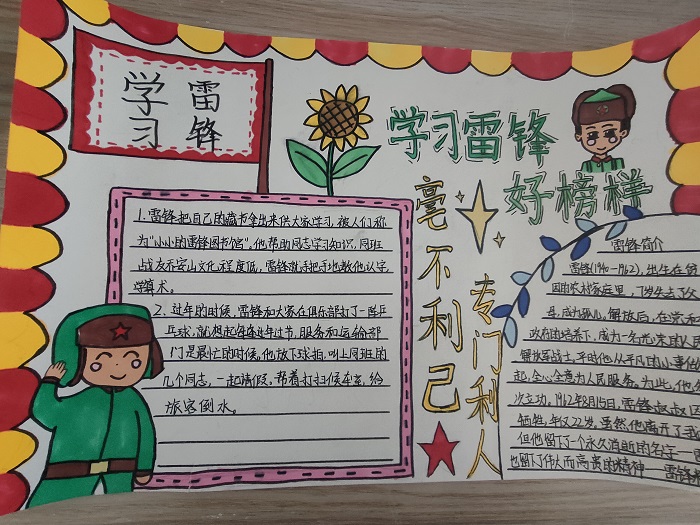 学习
雷锋
学习雷锋
好榜样
毫不利己
专门利人
1.雷锋把自己的藏书拿出来供大家学习，被人们称
为“小小的雷锋图书馆”，他帮助同志学习知识，同班
战友乔安山文化程度低，雷锋就手把手地教他认字，
学算术。
2、过年的时候，雷锋和大家在俱乐部打了一阵乒
乓球，就想起每逢年过节，服务和运输部
门是最忙的时候，他放下球拍，叫上同班的
几个同志，一起请假，帮着打扫候车室，给
旅客倒水。
雷锋简介
雷锋(1940-1962)，出生在
困的农村家庭里，7岁失去了父
母，成为孤儿，解放后，在党和
政府的培养下，成为一名光荣的人民
解放军战士，平时他从平凡的小事做
起，全心全意为人民服务。为此，他多
次立功，1962年8月15日，雷锋叔叔
牺牲，年仅22岁，虽然他离开了我
但他留下了一个永久消逝的名字一雷
也留下了伟大而高贵的精神——雷锋精